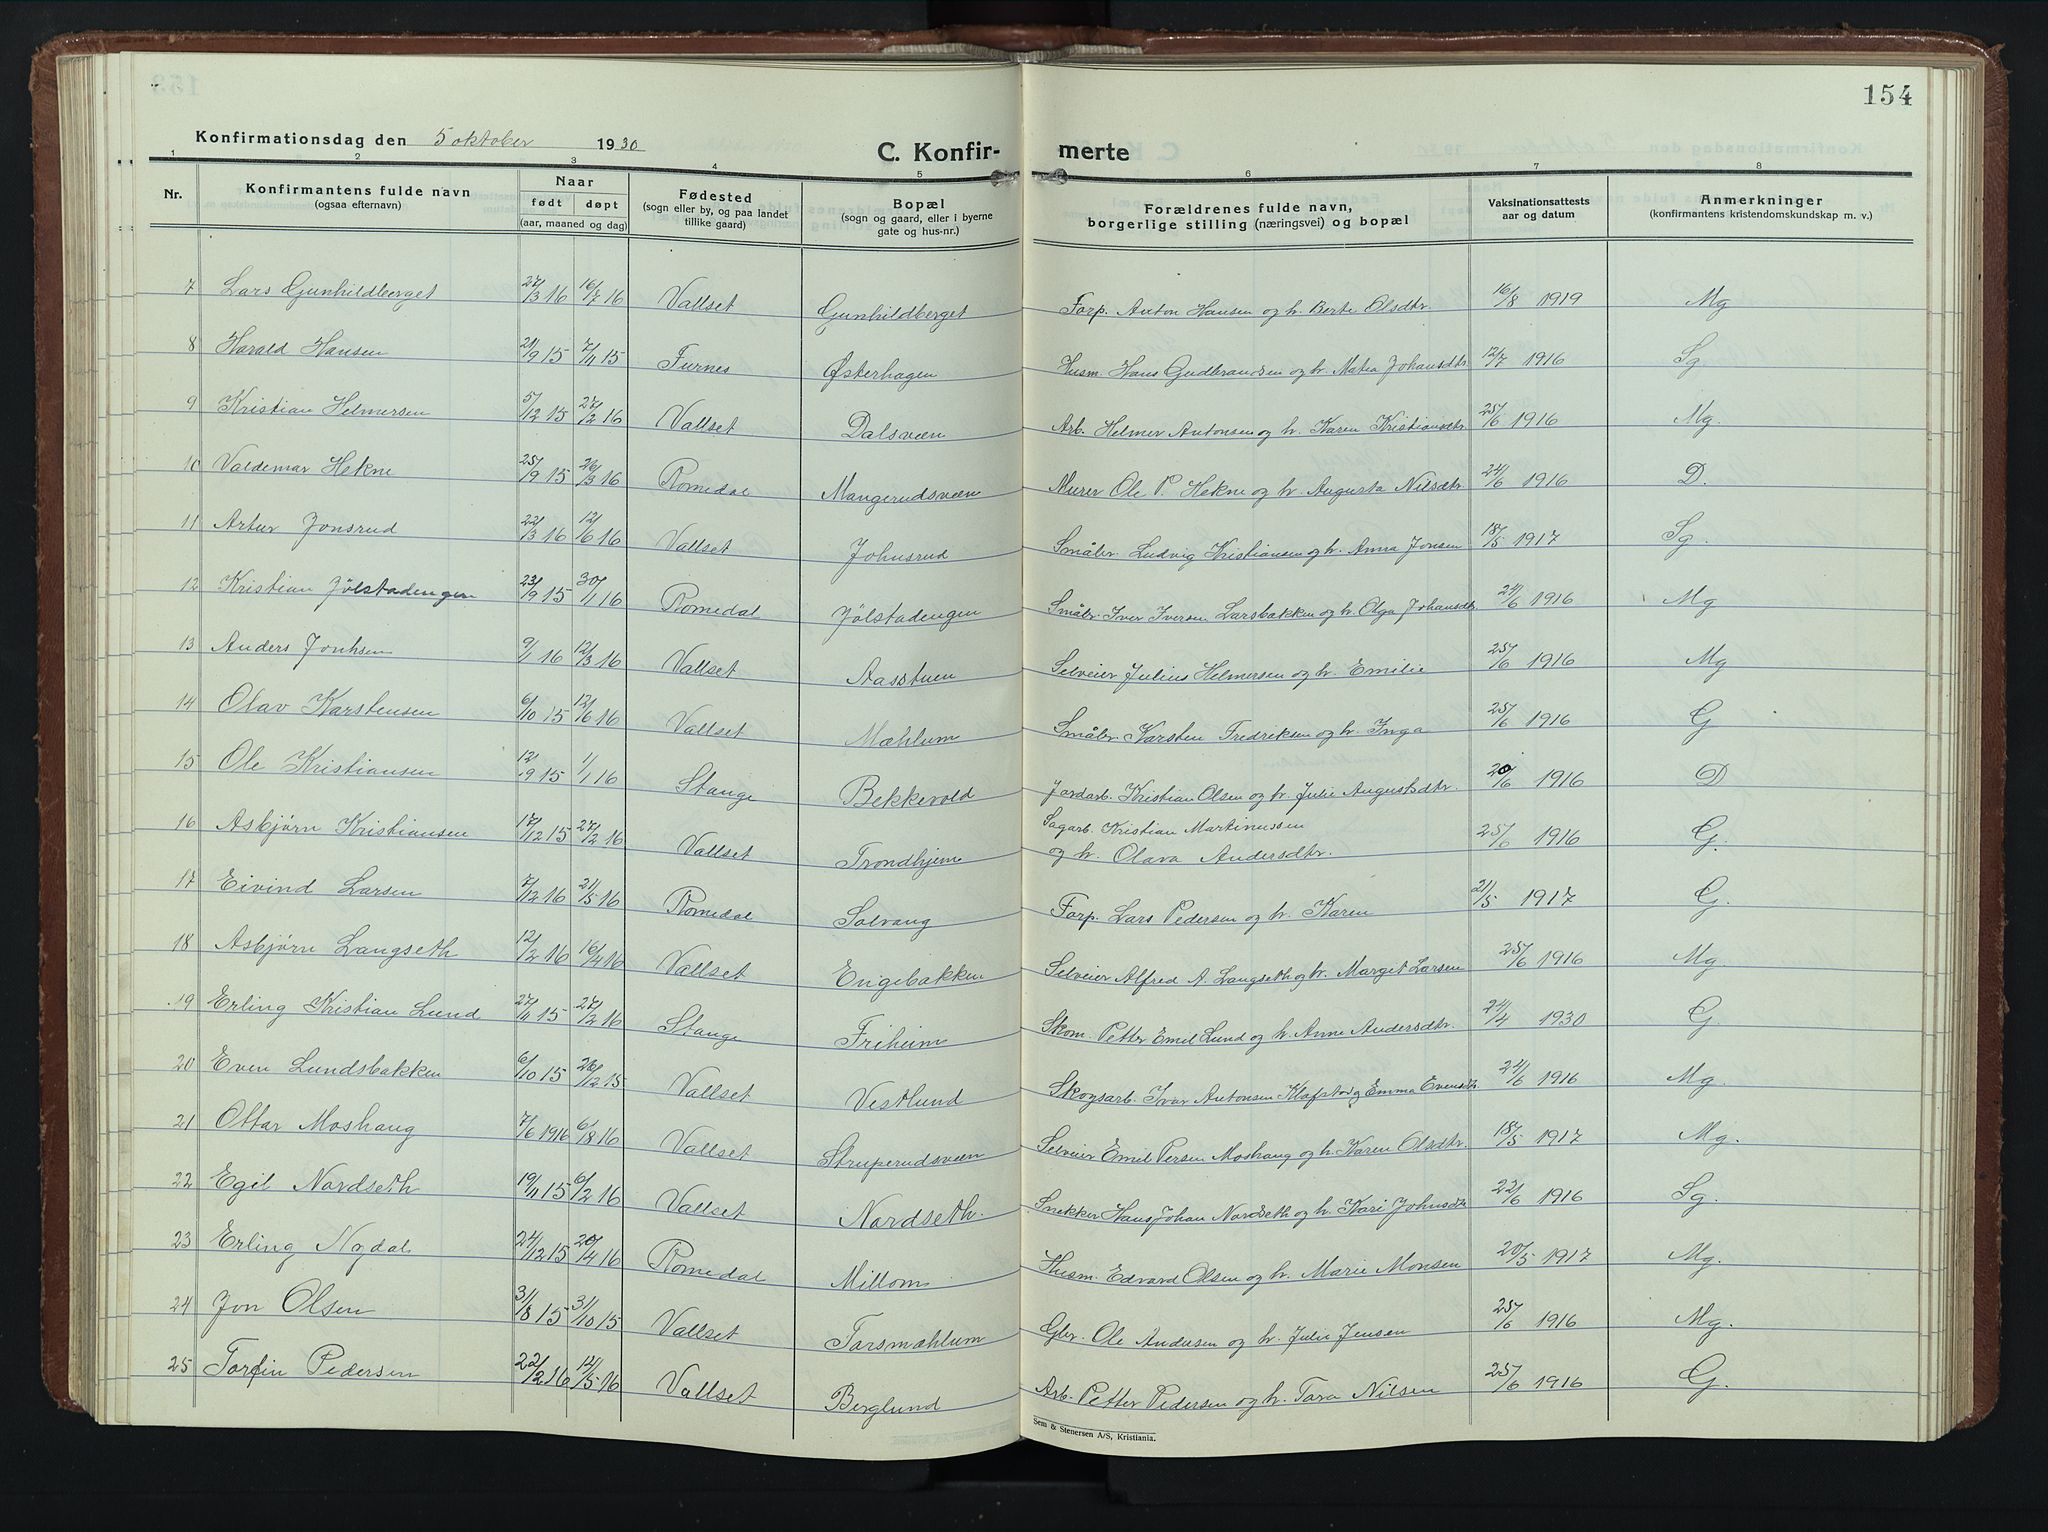 154
Konfirmationsdag den 5 oktober 1930
C. Konfir- merte
1 2 3 4 5 6 7 8
Nr. Konfirmantens fulde navn (ogsaa efternavn) Naar født døpt (aar, maaned og dag) Fødested (sogn eller by, og paa landet tillike gaard) Bopæl (sogn og gaard, eller i byerne gate og hus-nr.) Forældrenes fulde navn, borgerlige stilling (næringsvei) og bopæl Vaksinationsattests aar og datum Anmerkninger (konfirmantens kristendomskundskap m. v.)
7 Lars Gunhildberget 27/3 16 16/7 16 Vallset Gunhildberget Forp. Anton Hansen og h. Berte Olsdtr. 16/8 1919 Mg
8 Harald Hansen 21/9 15 7/11 15 Furnes Østerhagen Husm. Hans Gudbrandsen og h. Matea Johansdtr 12/7 1916 Sg.
9 Kristian Helmersen 5/12 15 27/2 16 Vallset Dalsvæen Arb. Helmer Antonsen og h. Karen Kristiansdtr 25/6 1916 Mg.
10 Valdemar Hekne 25/9 15 26/3 16 Romedal Mangerudsvæen Murer Ole P. Hekne og h. Augusta Nilsdtr 24/6 1916 D.
11 Artur Jonsrud 22/3 16 12/6 16 Vallset Johnsrud Småbr. Ludvig Kristiansen og h. Anna Jonsen 18/5 1917 Sg.
12 Kristian Jølstadengen 23/9 15 30/1 16 Romedal Jølstadengen Småbr. Iver Iversen Larsbakken og h. Olga Johansdtr 24/6 1916 Mg
13 Anders Jonhsen 9/1 16 12/3 16 Vallset Aasstuen Selveier Julius Helmersen og h. Emilie 25/6 1916 Mg
14 Olav Karstensen 6/10 15 12/6 16 Vallset Mæhlum Småbr. Karsten Fredriksen og h. Inga 25/6 1916 G
15 Ole Kristiansen 12/9 15 1/1 16 Stange Bekkevold Jordarb. Kristian Olsen og h. Julie Augustsdtr. 20/6 1916 D
16 Asbjørn Kristiansen 17/12 15 27/2 16 Vallset Trondhjem Sagarb. Kristian Martinussen
og h. Olava Andersdtr. 25/6 1916 G.
17 Eivind Larsen 7/12 16 21/5 16 Romedal Solvang Forp. Lars Pedersen og h. Karen 21/5 1917 G.
18 Asbjørn Langseth 12/2 16 16/4 16 Vallset Engebakken Selveier Alfred A. Langseth og h. Margit Larsen 25/6 1916 Mg
19 Erling Kristian Lund 27/11 15 27/2 16 Stange Friheim Skom. Petter Emil Lund og h. Anne Andersdtr. 24/4 1930 G.
20 Even Lundsbakken 6/10 15 26/12 15 Vallset Vestlund Skogsarb. Ivar Antonsen Klafstad og Emma Evensdtr. 24/6 1916 Mg.
21 Ottar Moshaug 7/6 1916 6/8 16 Vallset Struperudsvæen Selveier Emil Persen Moshaug og h. Karen Olsdtr. 18/5 1917 Mg.
22 Egil Nordseth 19/11 15 6/2 16 Vallset Nordseth. Snekker Hans Johan Nordseth og h. Kari Johnsdtr 22/6 1916 Sg.
23 Erling Nodal 24/12 15 20/4 16 Romedal Millom Husm. Edvard Olsen og h. Marie Monsen 20/5 1917 Mg.
24 Jon Olsen 31/8 15 31/10 15 Vallset Torsmæhlum Gbr. Ole Andersen og h. Julie Jensen 25/6 1916 Mg.
25 Torfin Pedersen 22/2 16 12/5 16 Vallset Berglund Arb. Petter Pedersen og h. Tora Nilsen 25/6 1916 G.
Sem & Stenersen A/S, Kristiania.